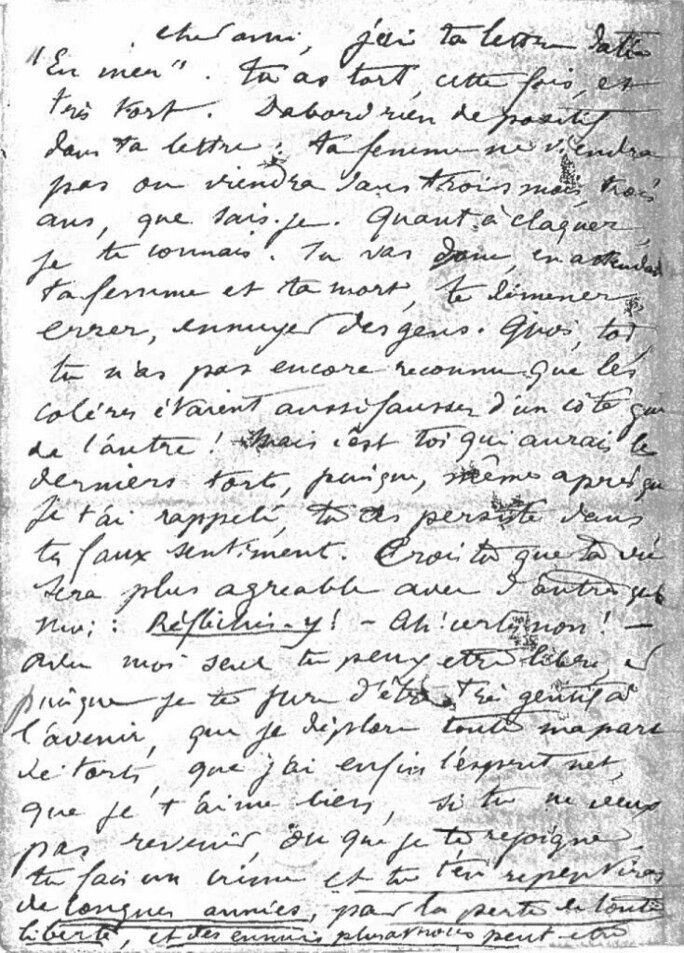 Cher ami, j'ai ta lettre datée
"En mer". Tu as tort, cette fois, et
très tort. D'abord rien de positif
dans ta lettre : ta femme ne viendra
pas ou viendra dans trois mois, trois
ans, que sais-je. Quant à claquer,
je te connais. Tu vas donc, en attendant
ta femme et ta mort, te démener,
errer, ennuyer des gens. Quoi, toi,
tu n'as pas encore reconnu que les
colères étaient aussi fausses d'un côté que
de l'autre ! Mais c'est toi qui aurais les
derniers torts, puisque, même après que
je t'ai rappelé, tu as persisté dans
tes faux sentiment. Crois tu que ta vie
sera plus agréable avec d'autres que
moi : Réfléchis-y ! - Ah ! certes non ! -
Avec moi seul tu peux être libre, et
puisque je te jure d'être très gentil à
l'avenir, que je déplore toute ma part
de torts, que j'ai enfin l'esprit net,
que je t'aime bien, si tu ne veux
pas revenir, ou que je te rejoigne,
tu fais un crime et tu t'en repentiras
de longues années, par la perte de toute
liberté, et des ennuis plus atroces peut être